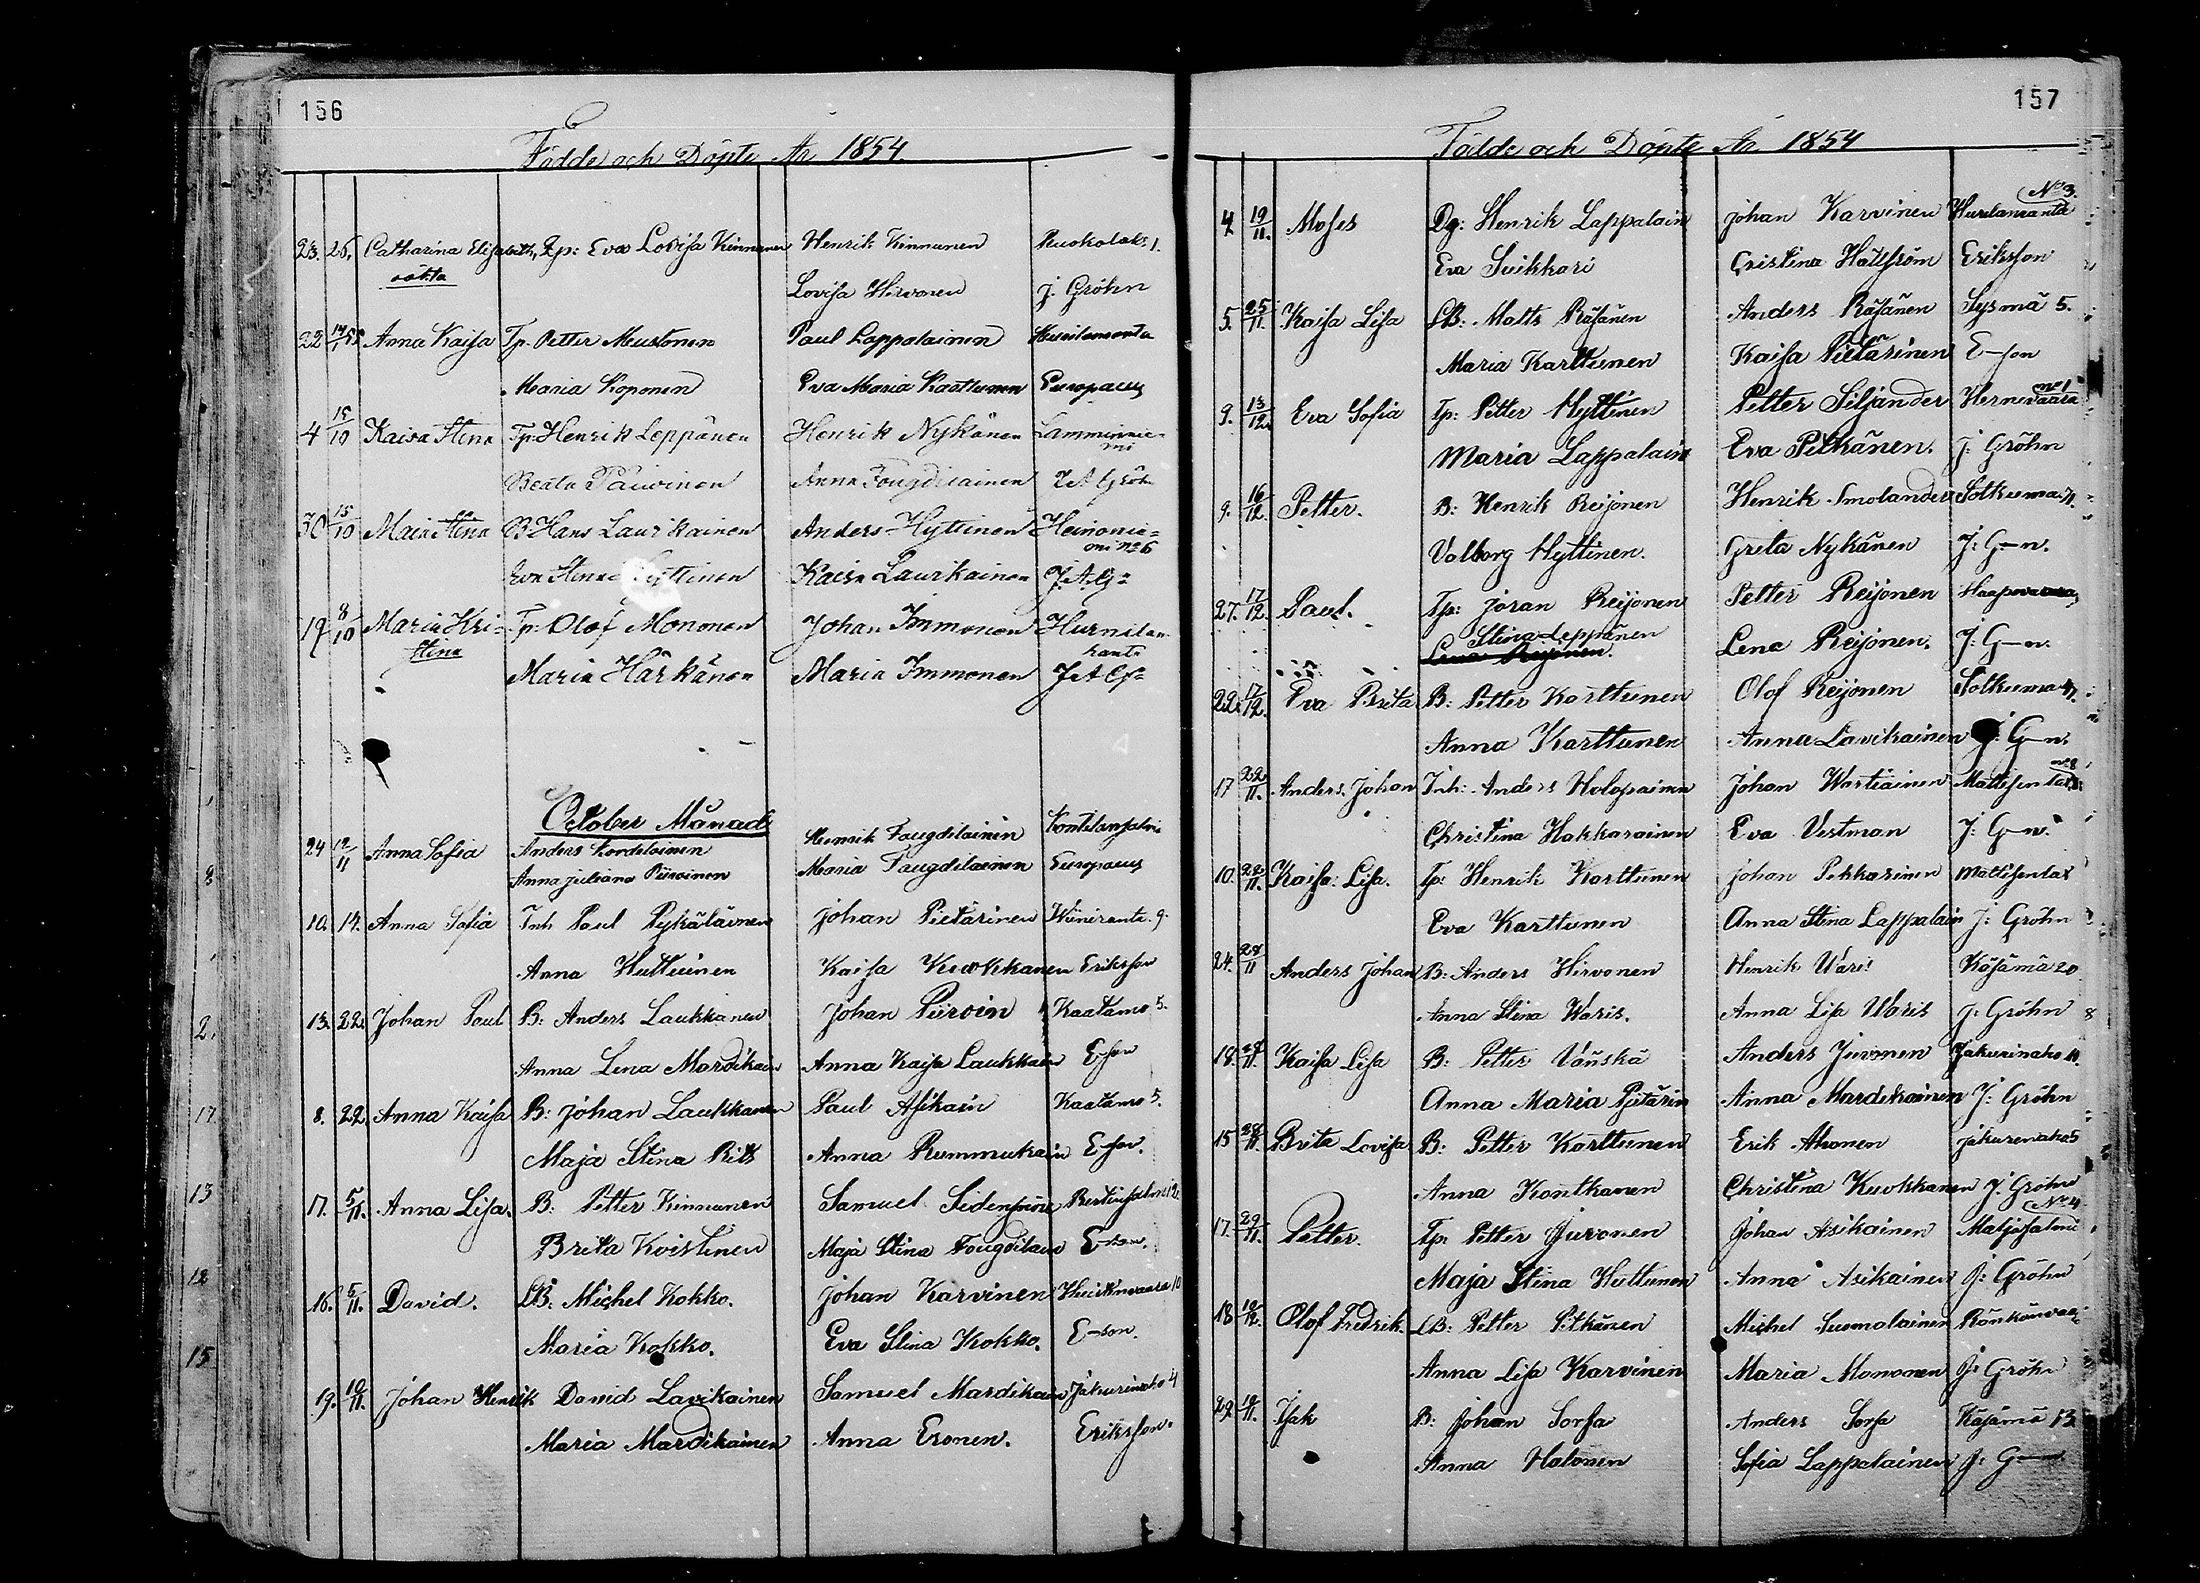 156
Födde och Döpte År 1854.
23. 26. Catharina Elisabeth, Tp: Eva Lovisa Kinnunen Henrik Kinnunen Ruokolaks 1.
oäkta Lovisa Hirvonen J. Gröhn
22 Anna Kaisa Tp. Petter Mustonen Paul Lappalainen
Maria Koponen Eva Maria Karttunen Europaeus
4 15/10 Kaisa Stina Tp. Henrik Leppänen Henrik Nykänen Lamminnie=
mi
Beata Päivinen Anna Fougdilainen J A Gröhn
30 15/10 Maria Stina B Hans Laurikainen Anders Hyttinen Heinonie=
mi No 6
Eva Stina Hyttinen Kaisa Laurikainen J. A. G=
19 8/10 Maria Kri= Tp. Olof Mononen Johan Immonen Hurnilan
stina ranta
Maria Härkönen Maria Immonen J A G=
October Månad
24 12/11 Anna Sofia Anders Kordelainen Henrik Fougdilainen Kontilanjalmi
Anna Juliana Piiroinen Maria Fougdilainen Europaeus
10. 14. Anna Sofia Inh Paul Pykäläinen Johan Pietarinen Wiiniranta 9.
Anna Huttuinen Kaisa Kuokkanen Eriksson
13. 22. Johan Paul B: Anders Laukkanen Johan Piiroin Kaatamo 5.
Anna Lena Mardikain Anna Kaisa Laukkan E-son
8. 22. Anna Kaisa B: Johan Laukkanen Paul Asikain Kaatamo 5.
Maja Stina Rits Anna Rummukain E-son.
17. 5/11. Anna Lisa. B: Petter Kinnunen Samuel
Brita Koistinen Maja Stina Fougdilain E-son.
16. 5/11. David. LB: Michel Kokko. Johan Karvinen
Maria Kokko. Eva Stina Kokko. E-son.
19. 10/11. Johan Henrik David Lavikainen Samuel Mardikain Jakurinaho 4
Maria Mardikainen Anna Eronen. Eriksson.
157
Födde och Döpte År 1854
No 3.
4 19/11. Moses Dg: Henrik Lappalain Johan Karvinen Hurulanranta
Eva Suikkari Cristina Hällström Eriksson
5. 25/11. Kaisa Lisa LB: Matts Räsänen Anders Räsänen Sysmä 5.
Maria Karttunen Kaisa Pietarinen E-son
No 1
9. 13/12. Eva Sofia Tp: Petter Hyttinen Petter Siljander Hernevaara
Maria Lappalain Eva Pitkänen. J: Gröhn
9. 16/12. Petter. B: Henrik Reijonen Henrik Smolander Sotkuma
Valborg Hyttinen. Greta Nykänen J: G-n.
27. 17/12. Paul. Tp: Jöran Reijonen Petter Reijonen Haapovaara
Stina Leppänen
Lena Reijonen. Lena Reijonen. J: G-n.
22. 17/12. Eva Brita B: Petter Karttunen Olof Reijonen Sotkuma
Anna Karttunen Anna Lavikainen J: G-n.
No 8
17 22/11. Anders Johan Inh: Anders Holopainen Johan Wartiainen Mattisenlax
Christina Hakkarainen Eva Vestman J: G-n.
10. 22/11. Kaisa Lisa. Tp: Henrik Karttunen Johan Pekkarinen Mattisenlax
Eva Karttunen Anna Stina Lappalain J: Gröhn
24. 28/11 Anders Johan B: Anders Hirvonen Henrik Waris Käsämä 20
Anna Stina Waris. Anna Lisa Waris J: Gröhn
18. 28/11. Kaisa Lisa B: Petter Vänskä Anders Juvonen Jakurinaho
Anna Maria Pietarin Anna Mardikainen J: Gröhn
15 28/11. Brita Lovisa B: Petter Karttunen Erik Ahonen Jakurenaho 5
Anna Kontkanen Christina Kuokkanen J: Gröhn
No 4.
17. 29/11. Petter. Tp: Petter Juvonen Johan Asikainen
Maja Stina Huttunen Anna Asikainen J: Gröhn
18 Olof Fredrik. LB: Petter Pitkänen Michel Suomalainen Rönkönvaa
Anna Lisa Karvinen Maria Mononen J: Gröhn
29 Isak B: Johan Sorsa Anders Sorsa Käsämä 13.
Anna Halonen Sofia Lappalainen J: G-n
8
2.
17
13
12
15